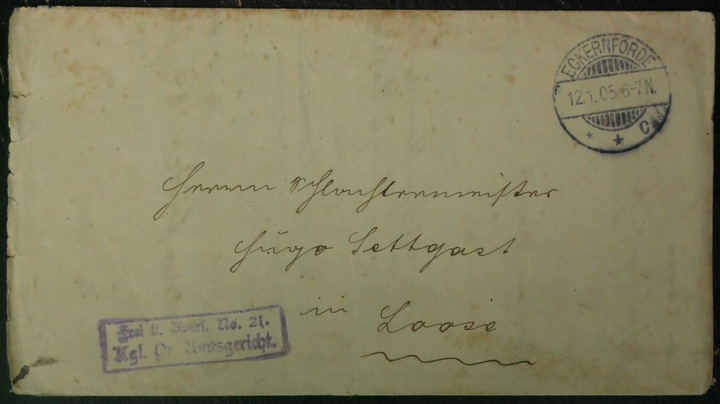 ECKERNFÖRDE
12.1.05.6-7N.
* ★ c
Herrn Schlachtermeister
Hugo Settgast
in Loose
Frei lt. Avers. No. 21.
Kgl. Pr. Amtsgericht.